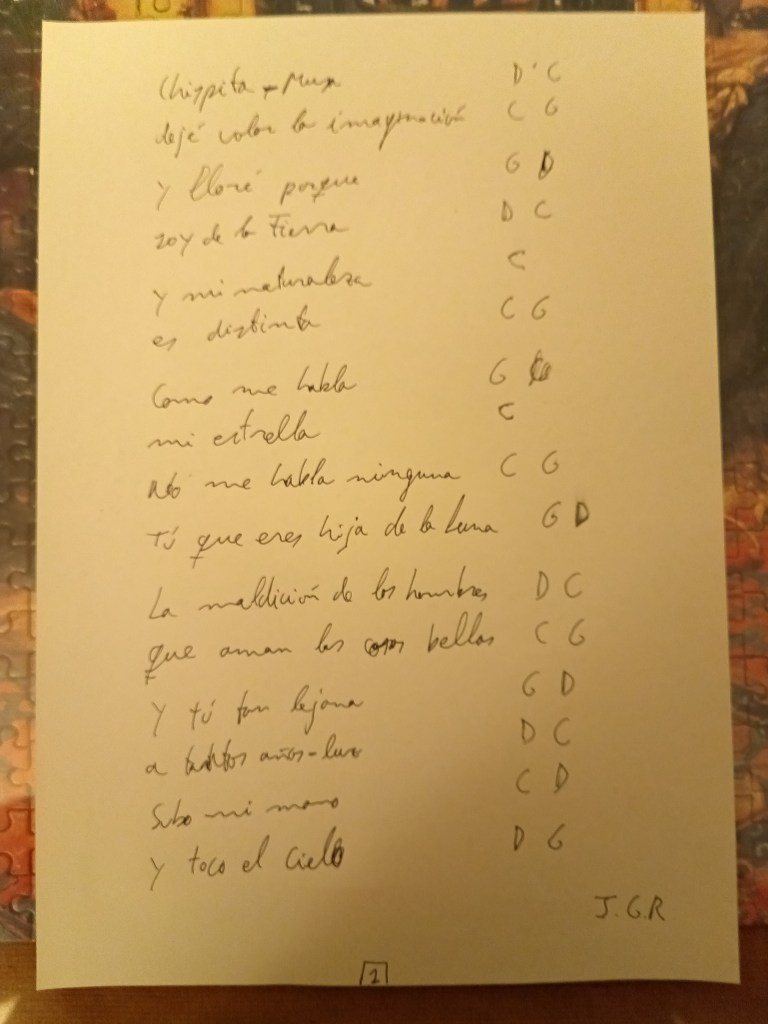 Chispita - Musa D C
dejé volar la imaginación C G
y lloré porque G D
soy de la Tierra D C
y mi naturaleza C
es distinta C G
Como me habla G
mi estrella C
No me habla ninguna C G
Tú que eres hija de la Luna G D
La maldición de los hombres D C
que aman las cosas bellas C G
Y tú tan lejana G D
a tantos años-luz D C
Subo mi mano C D
Y toco el cielo D G
J.G.R
2